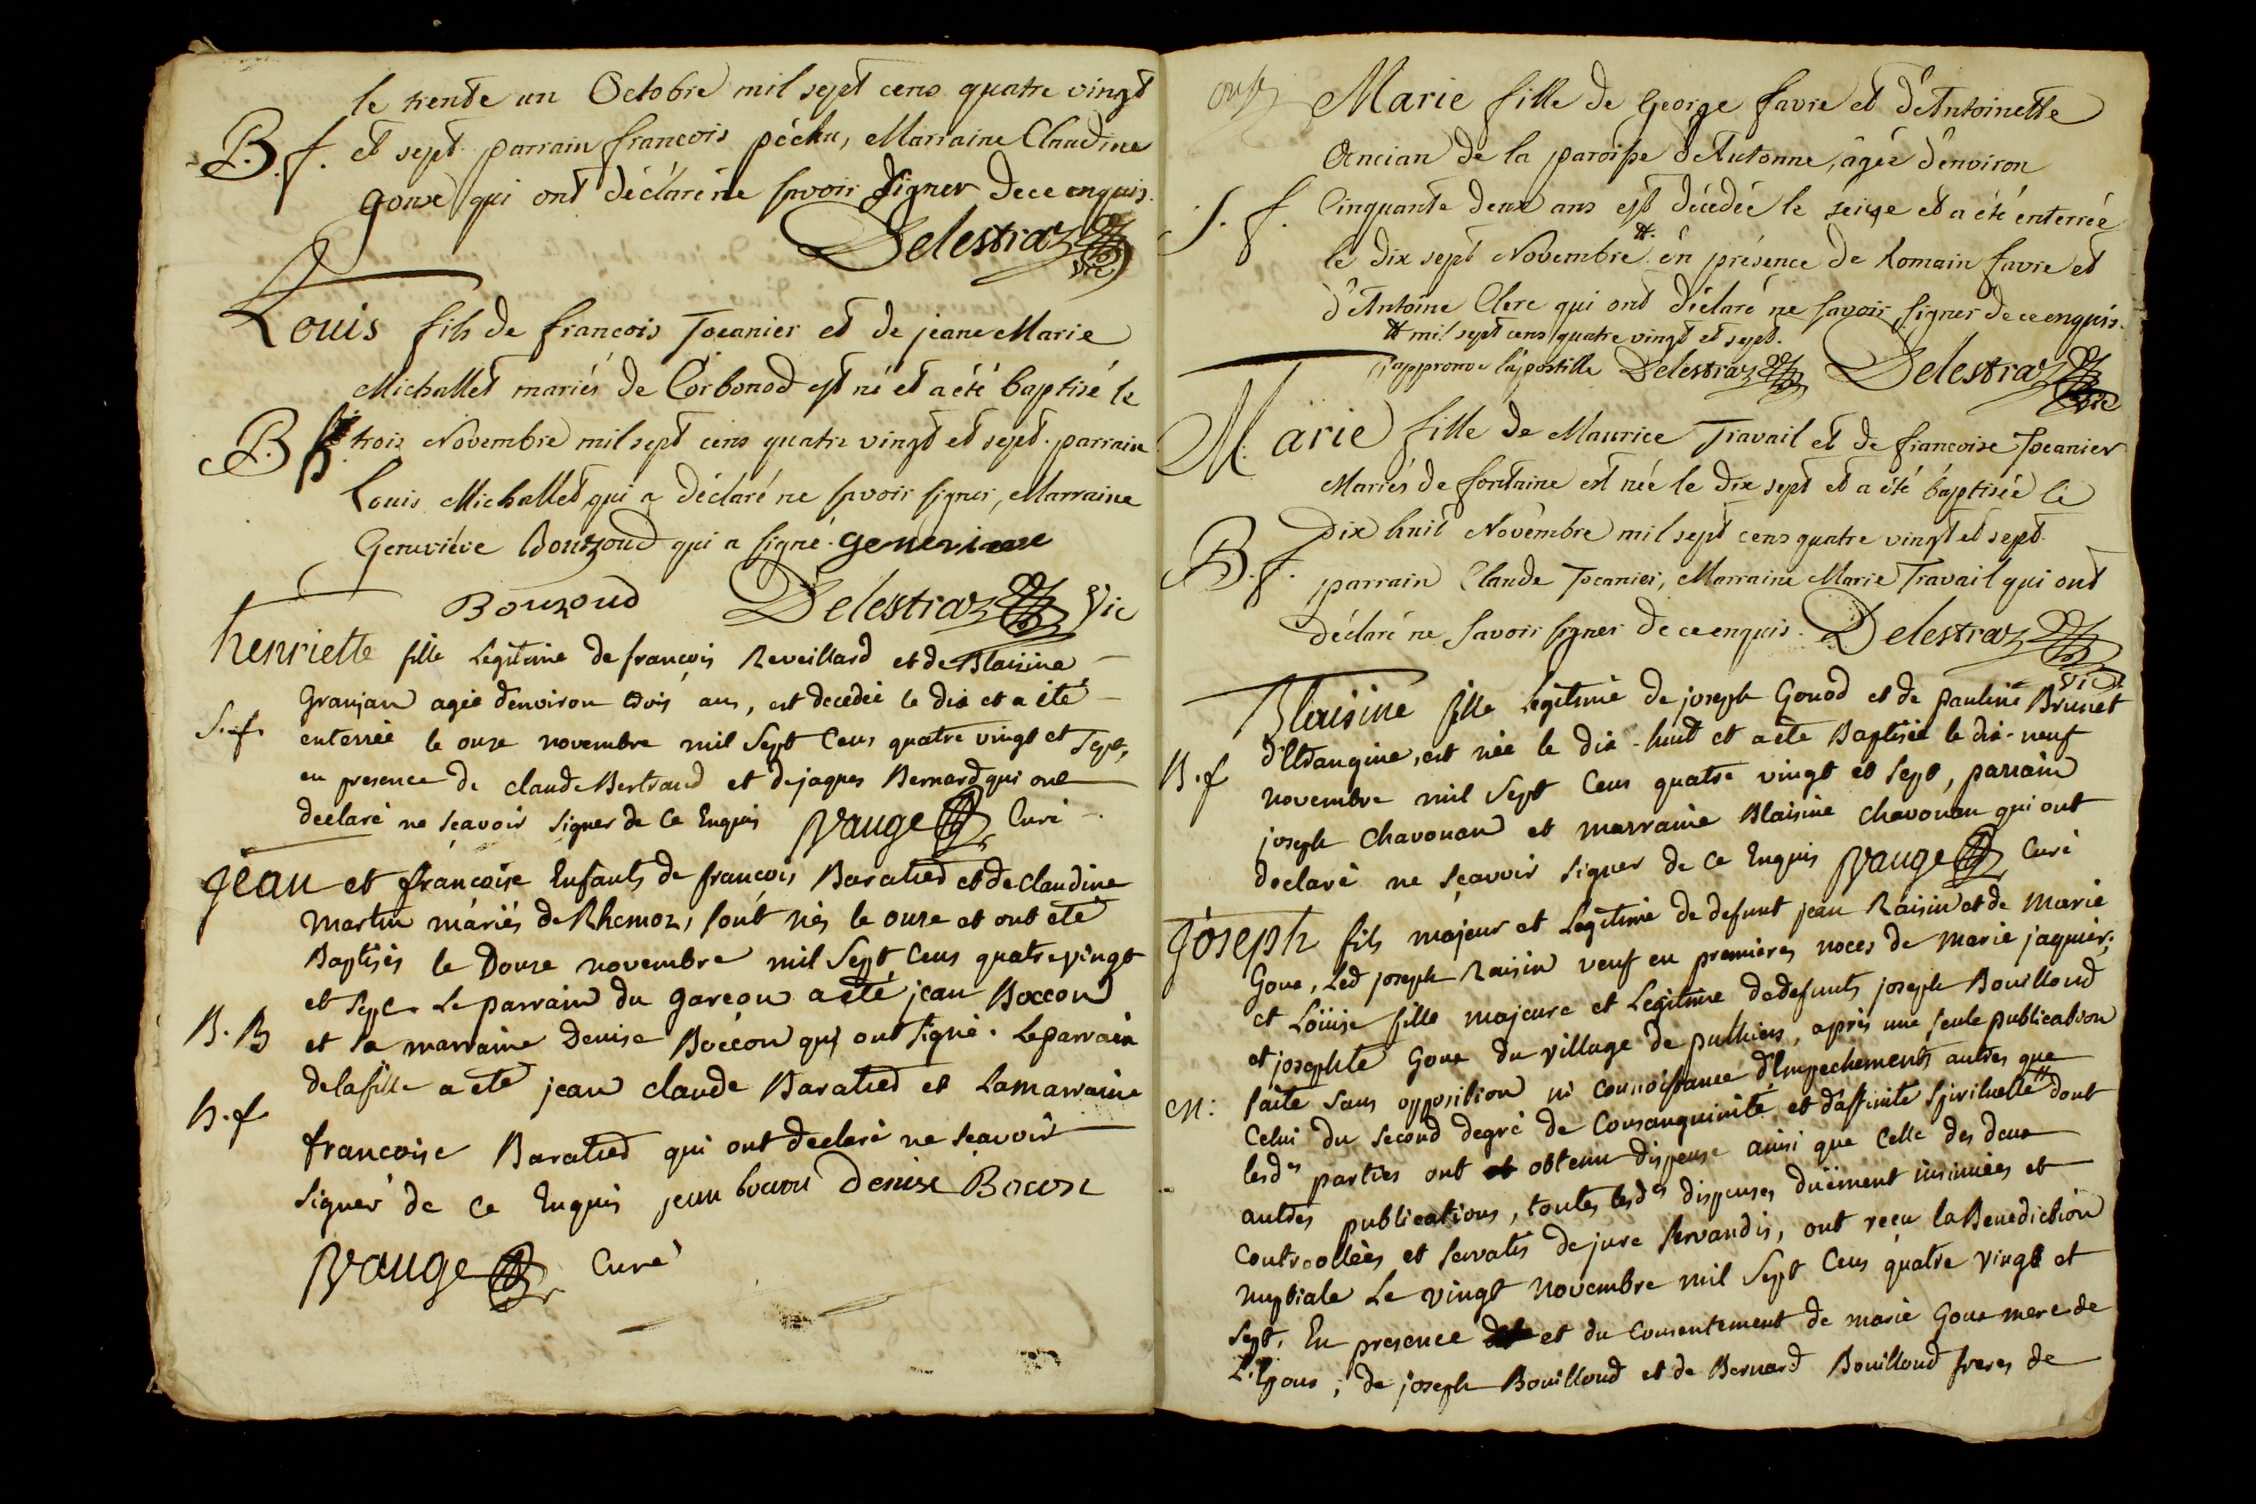 le trente un Octobre mil sept cens quatre vingt
B. f. et sept. parrain francois péchu, Marraine Claudine
goux qui ont déclaré ne savoir signer de ce enquis.
Delestraz vic
Louis fils de francois Tocanier et de jeane Marie
Michallet mariés de Corbonod est né et a été baptisé le
B trois Novembre mil sept cens quatre vingt et sept. parrain
Louis Michallet qui a déclaré ne savoir signer, Marraine
Geneviéve Bouzoud qui a signé. genevieve
Bouzoud Delestraz Vic
henriette fille Legitime de françois Reveillard et de Blaisine
Granjan agée d'environ trois ans, est decedée le dix et a eté
S. f. enterrée le onze novembre mil Sept Cens quatre vingt et Sept,
en presence de claude Bertrand et de jaques Bernard qui ont
declaré ne sçavoir signer de Ce Enquis Vauge Curé
jean et françoise Enfants de françois Baratied et de claudine
martin mariés de Rhemoz, sont nés le onze et ont eté
Baptisés le Douze novembre mil Sept Cens quatre vingt
et Sept. Le parrain du garçon a eté jean Boccon
B. B et la marraine Denise Boccon qui ont signé. Le parrain
de la fille a eté jean claude Baratied et La marraine
B. f francoise Baratied qui ont declaré ne sçavoir
signer de Ce Enquis jean bocon Denise Bocon
Vauge Curé
Marie fille de George favre et d'Antoinette
Ancian de la paroisse d'Autonne, âgée d'environ
S. f. Cinquante deux ans est décédée le seize et a été enterrée
le dix sept Novembre # en présence de Romain favre et
d'Antoine Clerc qui ont déclaré ne savoir signer de ce enquis.
# mil sept cens quatre vingt et sept.
j'approuve l'apostille Delestraz Delestraz vic
Marie fille de Maurice Travail et de francoise Tocanier
Mariés de fontaine est née le dix sept et a été baptisée le
dix huit Novembre mil sept cens quatre vingt et sept.
B. f. parrain Claude Tocanier, Marraine Marie Travail qui ont
déclaré ne savoir signer de ce enquis. Delestraz
vic
Blaisine fille legitime de joseph Gonod et de pauline Brunet
d'Etrangine, est née le dix-huit et a eté Baptisée le dix-neuf
B. f novembre mil Sept Cens quatre vingt et Sept, parrain
joseph Chavonan et marraine Blaisine Chavonan qui ont
declaré ne sçavoir signer de Ce Enquis Vauge Curé
joseph fils majeur et Legitime de defunt jean Raisin et de Marie
Goux, Led joseph Raisin veuf en premieres noces de marie jaquier;
et Loüise fille majeure et Legitime de defunts joseph Bouilloud
et josephte Goux du village de puthiers, après une seule publication
M: faite sans opposition ni connoissance d'Empechements autres que
Celui du second degré de Consanguinité et d'affinité spirituelle # dont
lesd.es parties ont obtenu dispense ainsi que Celle des deux
autres publications, toutes lesd.es dispenses duëment insinuées et
Controollées et servatis de jure servandis, ont reçu la Benediction
nuptiale Le vingt novembre mil Sept Cens quatre vingt et
sept, En presence et du consentement de marie Goux mere de
L'Epoux; de joseph Bouilloud et de Bernard Bouilloud freres de